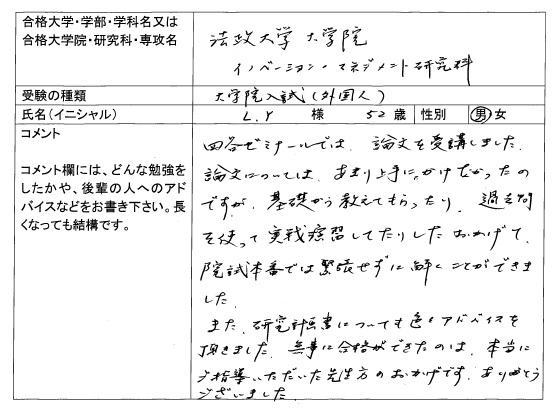 合格大学・学部・学科名又は
合格大学院・研究科・専攻名
法政大学 大学院
イノベーション・マネジメント研究科
受験の種類
大学院入試(外国人)
氏名(イニシャル)
L.Y 様 52歳 性別 男 女
コメント
コメント欄には、どんな勉強を
したかや、後輩の人へのアド
バイスなどをお書き下さい。長
くなっても結構です。
四谷ゼミナールでは、論文を受講しました。
論文については、あまり上手に、かけなかったの
ですが、基礎から教えてもらったり、過去問
を使って実戦演習してたりしたおかげで、
院試本番では緊張せずに解くことができま
した。
また、研究計画書についても色々アドバイスを
頂きました。無事に合格ができたのは、本当に
ご指導いただいた先生方のおかげです。ありがとう
ございました。